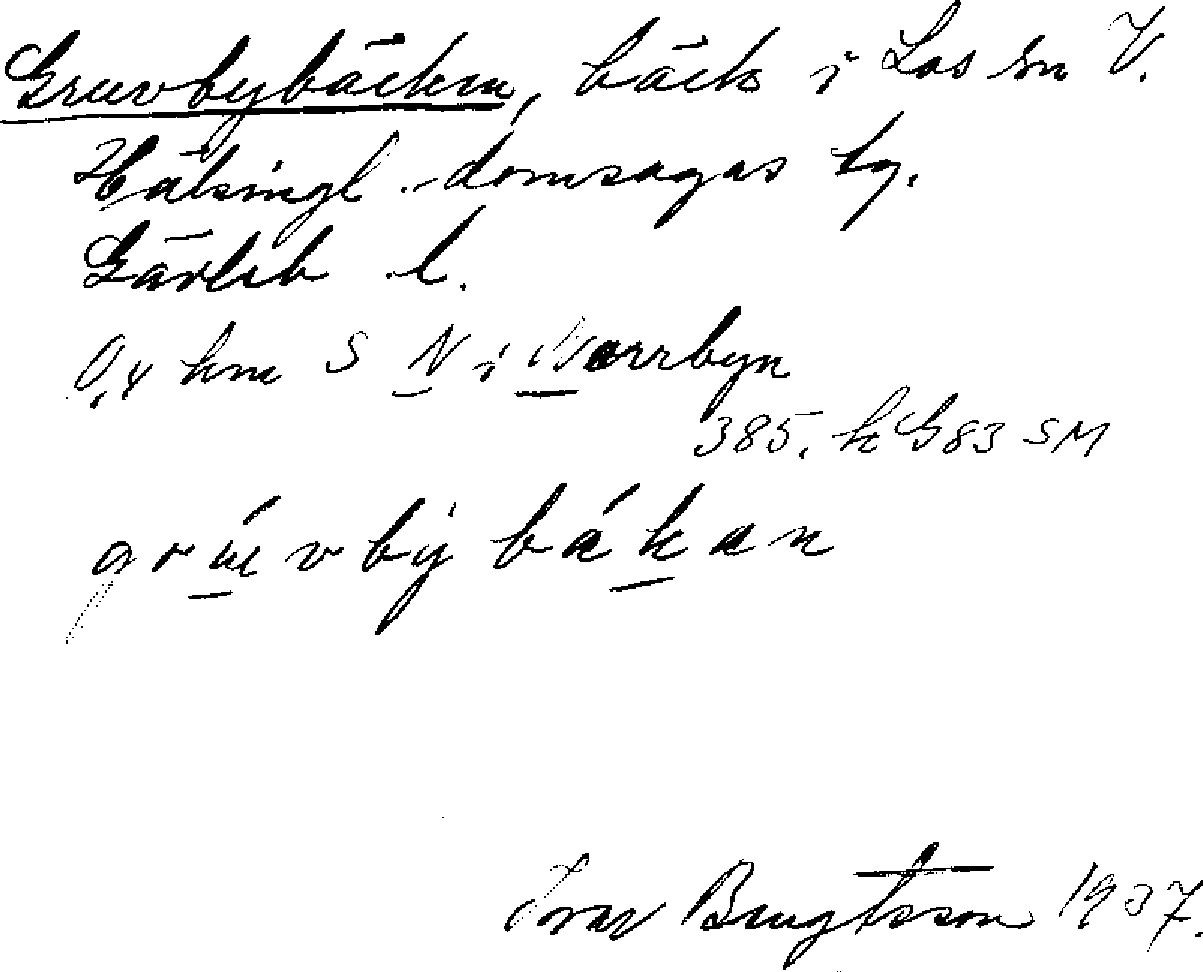 Gruvbybäcken, bäck i Los sn V.
Hälsingl. domsagas tg.
Gävleb l.
0,4 km S N i Norrbyn
385. k G83 SM
grúvbý bákan
Ivar Bengtsson 1937.